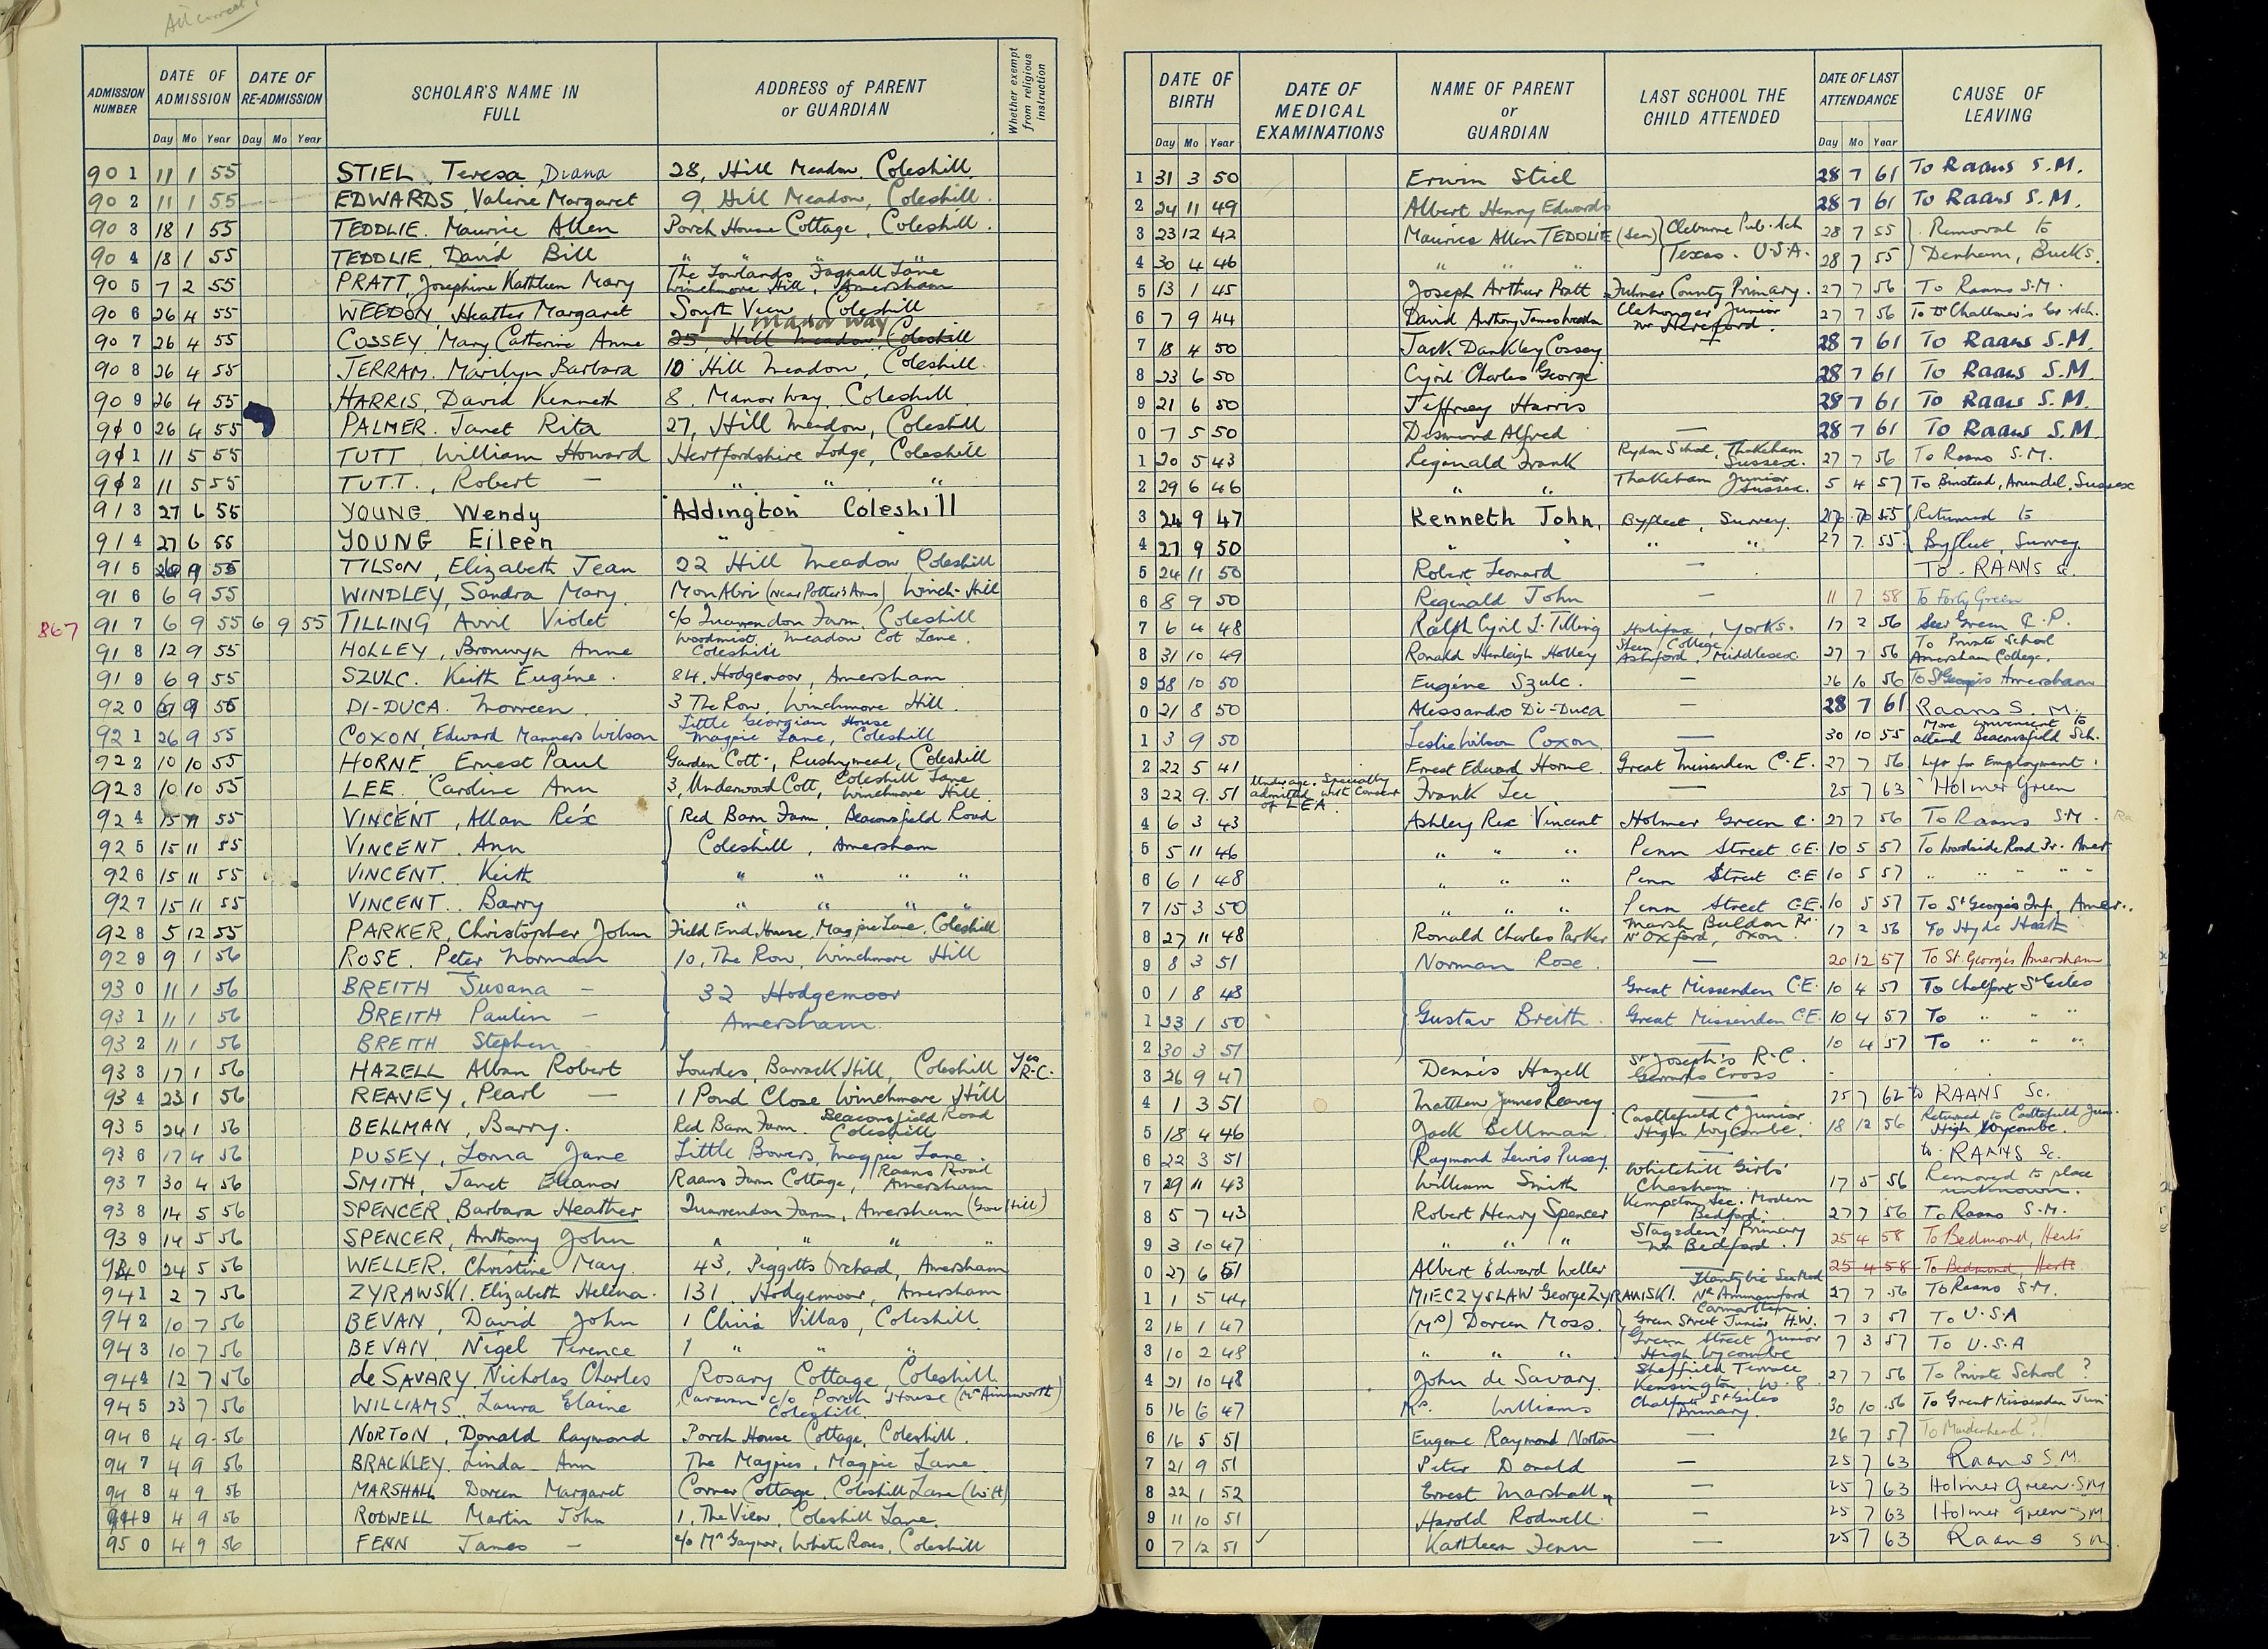 All correct
ADMISSION NUMBER | DATE OF ADMISSION Day Mo Year | DATE OF RE-ADMISSION Day Mo Year | SCHOLAR'S NAME IN FULL | ADDRESS of PARENT or GUARDIAN | Whether exempt from religious instruction
901 11 1 55 STIEL Teresa Diana 28, Hill Meadow, Coleshill.
902 11 1 55 EDWARDS, Valerie Margaret 9, Hill Meadow, Coleshill.
903 18 1 55 TEDDLIE. Maurice Allen Porch House Cottage, Coleshill.
904 18 1 55 TEDDLIE. David Bill " "
905 7 2 55 PRATT, Josephine Kathleen Mary The Lowlands, Fagnall Lane Winchmore Hill, Amersham
906 26 4 55 WEEDON, Heather Margaret South View Coleshill
907 26 4 55 COSSEY. Mary Catherine Anne 25, Hill Meadow 1 Manor Way Coleshill
908 26 4 55 JERRAM. Marilyn Barbara 10 Hill Meadow, Coleshill.
909 26 4 55 HARRIS, David Kenneth 8, Manor Way, Coleshill
910 26 4 55 PALMER. Janet Rita 27, Hill Meadow, Coleshill
911 11 5 55 TUTT William Howard Hertfordshire Lodge, Coleshill
912 11 5 55 TUTT., Robert — " " "
913 27 6 55 YOUNG Wendy "Addington" Coleshill
914 27 6 55 YOUNG Eileen " "
915 9 55 TILSON, Elizabeth Jean 22 Hill Meadow Coleshill
916 6 9 55 WINDLEY, Sandra Mary. Mon Abri (Near Potter's Arms) Winch- Hill
867 917 6 9 55 6 9 55 TILLING Avril Violet c/o Quarrendon Farm. Coleshill
918 12 9 55 HOLLEY, Bronwyn Anne Woodmist, Meadow Cot Lane. Coleshill
919 6 9 55 SZULC. Keith Eugéne. 84, Hodgemoor, Amersham
920 9 55 DI-DUCA. Noreen 3 The Row, Winchmore Hill.
921 26 9 55 COXON, Edward Manners Wilson Little Georgian House Magpie Lane, Coleshill
922 10 10 55 HORNE Ernest Paul Garden Cott., Rushymead, Coleshill
923 10 10 55 LEE. Caroline Ann 3, Underwood Cott, Coleshill Lane Winchmore Hill.
924 15 11 55 VINCENT, Allan Rex Red Barn Farm, Beaconsfield Road
925 15 11 55 VINCENT. Ann Coleshill, Amersham
926 15 11 55 VINCENT. Keith " " " "
927 15 11 55 VINCENT. Barry " " " "
928 5 12 55 PARKER, Christopher John Field End House, Magpie Lane, Coleshill
929 9 1 56 ROSE. Peter Norman 10, The Row, Winchmore Hill
930 11 1 56 BREITH Susana — 32 Hodgemoor
931 11 1 56 BREITH Paulin — Amersham.
932 11 1 56 BREITH Stephen
933 17 1 56 HAZELL Alban Robert Lourdes, Barrack Hill, Coleshill Yes R.C.
934 23 1 56 REAVEY, Pearl — 1 Pond Close Winchmore Hill
935 24 1 56 BELLMAN, Barry. Red Barn Farm. Beaconsfield Road Coleshill
936 17 4 56 PUSEY, Lorna Jane Little Bowers, Magpie Lane.
937 30 4 56 SMITH, Janet Eleanor Raans Farm Cottage, Raans Road Amersham
938 14 5 56 SPENCER, Barbara Heather Quarrendon Farm, Amersham (Gore Hill)
939 14 5 56 SPENCER, Anthony John " " " "
940 24 5 56 WELLER. Christine May. 43, Piggotts Orchard, Amersham
941 2 7 56 ZYRAWSKI. Elizabeth Helena. 131. Hodgemoor, Amersham
942 10 7 56 BEVAN, David John 1 Villas, Coleshill.
943 10 7 56 BEVAN, Nigel Terence 1 " " "
944 12 7 56 de SAVARY, Nicholas Charles Rosary Cottage, Coleshill.
945 23 7 56 WILLIAMS, Laura Elaine Caravan c/o Porch House (Mr Ainsworth) Coleshill.
946 4 9 56 NORTON, Donald Raymond Porch House Cottage, Coleshill.
947 4 9 56 BRACKLEY. Linda Ann The Magpies, Magpie Lane.
948 4 9 56 MARSHALL Doreen Margaret Corner Cottage, Coleshill Lane (W.H)
949 4 9 56 RODWELL Martin John 1, The View, Coleshill Lane.
950 4 9 56 FENN James — c/o Mrs Gaynor, White Roses, Coleshill
DATE OF BIRTH Day Mo Year | DATE OF MEDICAL EXAMINATIONS | NAME OF PARENT or GUARDIAN | LAST SCHOOL THE CHILD ATTENDED | DATE OF LAST ATTENDANCE Day Mo Year | CAUSE OF LEAVING
1 31 3 50 Erwin Stiel 28 7 61 To Raans S.M.
2 24 11 49 Albert Henry Edwards 28 7 61 To Raans S.M.
3 23 12 42 Maurice Allen TEDDLIE (Sen) Cleburne Pub. Sch 28 7 55 Removal to
4 30 4 46 " " " Texas. U.S.A. 28 7 55 Denham, Bucks.
5 13 1 45 Joseph Arthur Pratt Fulmer County Primary. 27 7 56 To Raans S.M.
6 7 9 44 David Anthony James Weedon Clehonger Junior Nr Hereford. 27 7 56 To Dr Challoner's Gr. Sch.
7 18 4 50 Jack Dankley Cossey 28 7 61 To Raans S.M.
8 23 6 50 Cyril Charles George 28 7 61 To Raans S.M.
9 21 6 50 Jeffrey Harris 28 7 61 To Raans S.M.
0 7 5 50 Desmond Alfred — 28 7 61 To Raans S.M.
1 20 5 43 Reginald Frank Rydon School, Thakeham Sussex. 27 7 56 To Raans S.M.
2 29 6 46 " " Thakeham Junior Sussex. 5 4 57 To Binstead, Arundel, Sussex
3 24 9 47 Kenneth John, Byfleet, Surrey. 27 7 55 Returned to
4 27 9 50 " " " " 27 7 55 Byfleet, Surrey
5 24 11 50 Robert Leonard — TO. RAANS Sc.
6 8 9 50 Reginald John — 11 7 58 To Forty Green
7 6 4 48 Ralph Cyril J. Tilling Halifax, Yorks. 17 2 56 Seer Green C.P.
8 31 10 49 Ronald Henleigh Holley Steen College, Ashford, Middlesex. 27 7 56 To Private School Amersham College.
9 28 10 50 Eugéne Szulc. — 26 10 56 To St Georges Amersham
0 21 8 50 Alessandro Di-Duca — 28 7 61 Raans S.M.
1 3 9 50 Leslie Wilson Coxon — 30 10 55 More convenient to attend Beaconsfield Sch.
2 22 5 41 Ernest Edward Horne. Great Missenden C.E. 27 7 56 Left for Employment.
3 22 9 51 Underage. Specially admitted with Consent of LEA. Frank Lee — 25 7 63 Holmer Green
4 6 3 43 Ashley Rex Vincent Holmer Green C. 27 7 56 To Raans S.M.
5 5 11 46 " " " Penn Street C.E. 10 5 57 To Woodside Road Jr. Amer
6 6 1 48 " " " Penn Street C.E 10 5 57 " " " " "
7 15 3 50 " " " Penn Street C.E. 10 5 57 To St Georges Inf. Amer.
8 27 11 48 Ronald Charles Parker Marsh Baldon Pr. Nr Oxford, Oxon. 17 2 56 To Hyde Heath
9 8 3 51 Norman Rose. — 20 12 57 To St. George's Amersham
0 1 8 48 Great Missenden C.E. 10 4 57 To Chalfont St Giles
1 23 1 50 Gustav Breith. Great Missenden C.E. 10 4 57 To " " "
2 30 3 51 — 10 4 57 To " " "
3 26 9 47 Dennis Hazell St Joseph's R.C. Gerrards Cross
4 1 3 51 Matthew James Reavey — 25 7 62 to RAANS Sc.
5 18 4 46 Jack Bellman. Castlefield C Junior High Wycombe. 18 12 56 Returned to Castlefield Jun. High Wycombe.
6 22 3 51 Raymond Lewis Pusey — to RAANS Sc.
7 29 11 43 William Smith Whitehill Girls' Chesham 17 5 56 Removed to place unknown.
8 5 7 43 Robert Henry Spencer Kempston Sec. Modern Bedford. 27 7 56 To Raans S.M.
9 3 10 47 " " " Stagsden Primary Nr Bedford. 25 4 58 To Bedmond, Herts
0 27 6 51 Albert Edward Weller — 25 4 58 To Bedmond, Herts
1 1 5 44 MIECZYSLAW George ZYRAWSKI. Nr Ammanford Carmarthen. 27 7 56 To Raans S.M.
2 16 1 47 (Mrs) Doreen Moss. Green Street Junior H.W. 7 3 57 To U.S.A
3 10 2 48 " " " Green Street Junior High Wycombe 7 3 57 To U.S.A
4 21 10 48 John de Savary. Sheffield Terrace Kensington. W.8. 27 7 56 To Private School?
5 16 6 47 Mrs. Williams Chalfont St Giles Primary. 30 10 56 To Great Missenden Juni
6 16 5 51 Eugene Raymond Norton — 26 7 57 To Maidenhead?!
7 21 9 51 Peter Donald — 25 7 63 Raans S M.
8 22 1 52 Ernest Marshall — 25 7 63 Holmer Green. SM
9 11 10 51 Harold Rodwell. — 25 7 63 Holmer Green SM
0 7 12 51 Kathleen Fenn — 25 7 63 Raans S M.